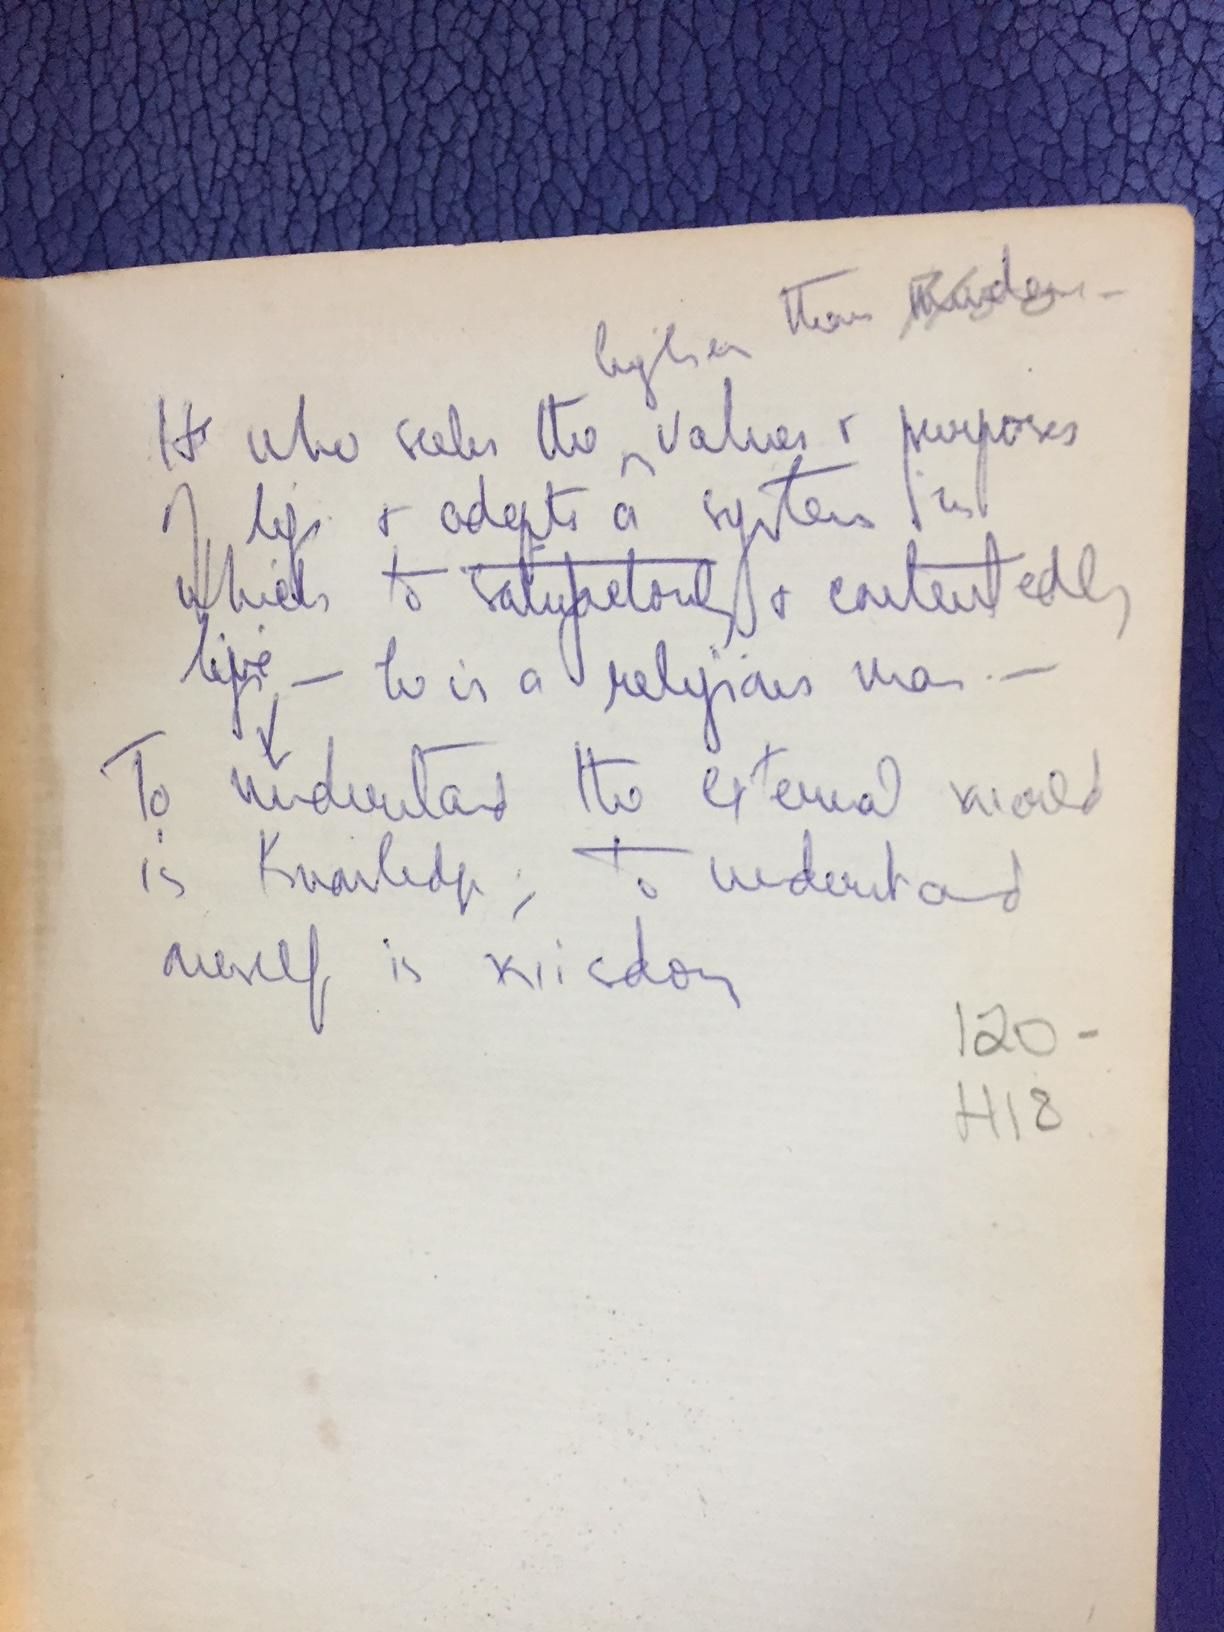 than
higher
He who seeks the ^ values & purposes
of life & adopts a system in
which to satisfactorily & contentedly
live — he is a religious man —
To understand the external world
is Knowledge; To understand
oneself is wisdom
120-
H18